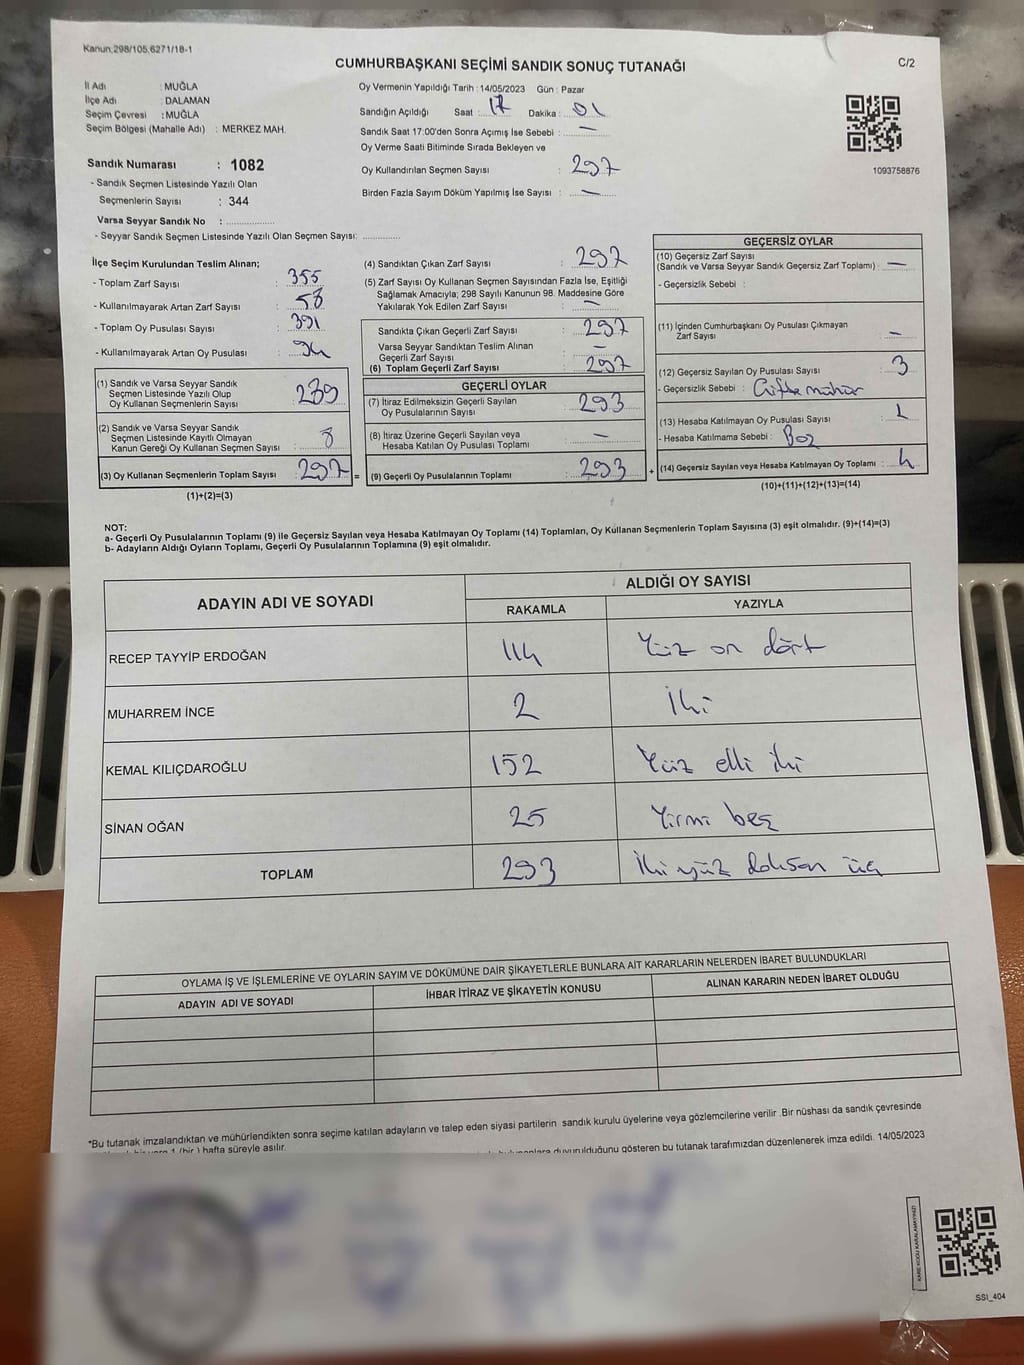 Kanun;298/105,6271/18-1
CUMHURBAŞKANI SEÇİMİ SANDIK SONUÇ TUTANAĞI
C/2
İl Adı : MUĞLA
İlçe Adı : DALAMAN
Seçim Çevresi : MUĞLA
Seçim Bölgesi (Mahalle Adı) : MERKEZ MAH.
Oy Vermenin Yapıldığı Tarih : 14/05/2023 Gün : Pazar
Sandığın Açıldığı Saat : 17 Dakika : 01
Sandık Saat 17:00'den Sonra Açımış İse Sebebi : —
Oy Verme Saati Bitiminde Sırada Bekleyen ve
Oy Kullandırılan Seçmen Sayısı : 297
Birden Fazla Sayım Döküm Yapılmış İse Sayısı : —
1093758876
Sandık Numarası : 1082
- Sandık Seçmen Listesinde Yazılı Olan
Seçmenlerin Sayısı : 344
Varsa Seyyar Sandık No :
- Seyyar Sandık Seçmen Listesinde Yazılı Olan Seçmen Sayısı:
İlçe Seçim Kurulundan Teslim Alınan;
- Toplam Zarf Sayısı : 355
- Kullanılmayarak Artan Zarf Sayısı : 58
- Toplam Oy Pusulası Sayısı : 391
- Kullanılmayarak Artan Oy Pusulası : 94
(1) Sandık ve Varsa Seyyar Sandık
Seçmen Listesinde Yazılı Olup
Oy Kullanan Seçmenlerin Sayısı : 289
(2) Sandık ve Varsa Seyyar Sandık
Seçmen Listesinde Kayıtlı Olmayan
Kanun Gereği Oy Kullanan Seçmen Sayısı : 8
(3) Oy Kullanan Seçmenlerin Toplam Sayısı : 297 =
(1)+(2)=(3)
(4) Sandıktan Çıkan Zarf Sayısı : 297
(5) Zarf Sayısı Oy Kullanan Seçmen Sayısından Fazla İse, Eşitliği
Sağlamak Amacıyla; 298 Sayılı Kanunun 98. Maddesine Göre
Yakılarak Yok Edilen Zarf Sayısı : —
Sandıkta Çıkan Geçerli Zarf Sayısı : 297
Varsa Seyyar Sandıktan Teslim Alınan
Geçerli Zarf Sayısı : —
(6) Toplam Geçerli Zarf Sayısı : 297
GEÇERLİ OYLAR
(7) İtiraz Edilmeksizin Geçerli Sayılan
Oy Pusulalarının Sayısı : 293
(8) İtiraz Üzerine Geçerli Sayılan veya
Hesaba Katılan Oy Pusulası Toplamı : —
(9) Geçerli Oy Pusulalarının Toplamı : 293 +
GEÇERSİZ OYLAR
(10) Geçersiz Zarf Sayısı
(Sandık ve Varsa Seyyar Sandık Geçersiz Zarf Toplamı) : —
- Geçersizlik Sebebi :
(11) İçinden Cumhurbaşkanı Oy Pusulası Çıkmayan
Zarf Sayısı : —
(12) Geçersiz Sayılan Oy Pusulası Sayısı : 3
- Geçersizlik Sebebi : Çifte mühür
(13) Hesaba Katılmayan Oy Pusulası Sayısı : 1
- Hesaba Katılmama Sebebi : Boş
(14) Geçersiz Sayılan veya Hesaba Katılmayan Oy Toplamı : 4
(10)+(11)+(12)+(13)=(14)
NOT:
a- Geçerli Oy Pusulalarının Toplamı (9) ile Geçersiz Sayılan veya Hesaba Katılmayan Oy Toplamı (14) Toplamları, Oy Kullanan Seçmenlerin Toplam Sayısına (3) eşit olmalıdır. (9)+(14)=(3)
b- Adayların Aldığı Oyların Toplamı, Geçerli Oy Pusulalarının Toplamına (9) eşit olmalıdır.
ADAYIN ADI VE SOYADI
ALDIĞI OY SAYISI
RAKAMLA YAZIYLA
RECEP TAYYİP ERDOĞAN 114 Yüz on dört
MUHARREM İNCE 2 İki
KEMAL KILIÇDAROĞLU 152 Yüz elli iki
SİNAN OĞAN 25 Yirmi beş
TOPLAM 293 İki yüz doksan üç
OYLAMA İŞ VE İŞLEMLERİNE VE OYLARIN SAYIM VE DÖKÜMÜNE DAİR ŞİKAYETLERLE BUNLARA AİT KARARLARIN NELERDEN İBARET BULUNDUKLARI
ADAYIN ADI VE SOYADI İHBAR İTİRAZ VE ŞİKAYETİN KONUSU ALINAN KARARIN NEDEN İBARET OLDUĞU
*Bu tutanak imzalandıktan ve mühürlendikten sonra seçime katılan adayların ve talep eden siyasi partilerin sandık kurulu üyelerine veya gözlemcilerine verilir .Bir nüshası da sandık çevresinde
1 (bir ) hafta süreyle asılır.
duyurulduğunu gösteren bu tutanak tarafımızdan düzenlenerek imza edildi. 14/05/2023
KARE KODU KARALAMAYINIZ!
SSI_404